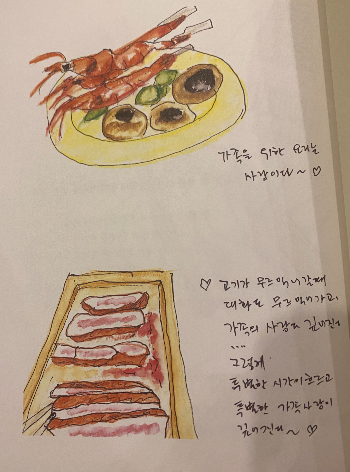 가족을 위한 요리는
사랑이다~ ♡
♡ 고기가 무르익어갈때
대화도 무르익어가고,
가족의 사랑도 깊어진다
....
그렇게
특별한 시간이 흐르고
특별한 가족사랑이
깊어진다~ ♡